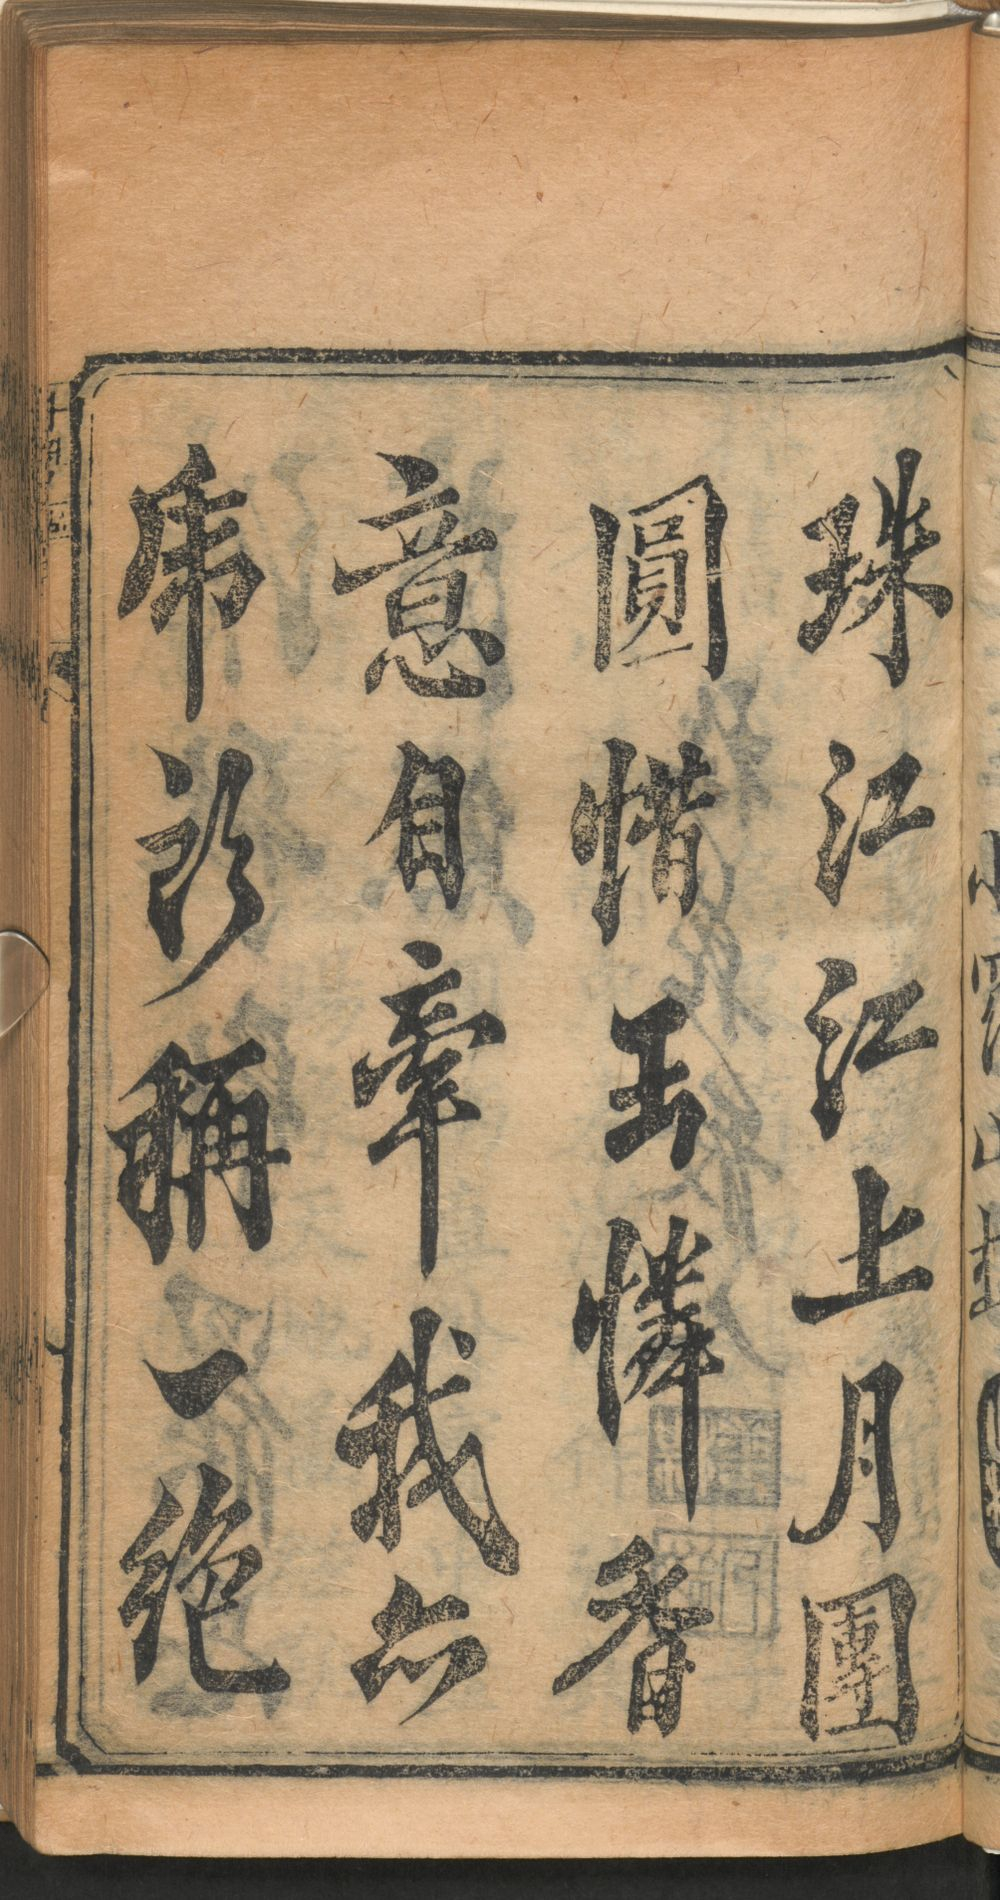 珠江江上月團
圓惜玉憐香
意自牽我亦
虎頭稱一絕